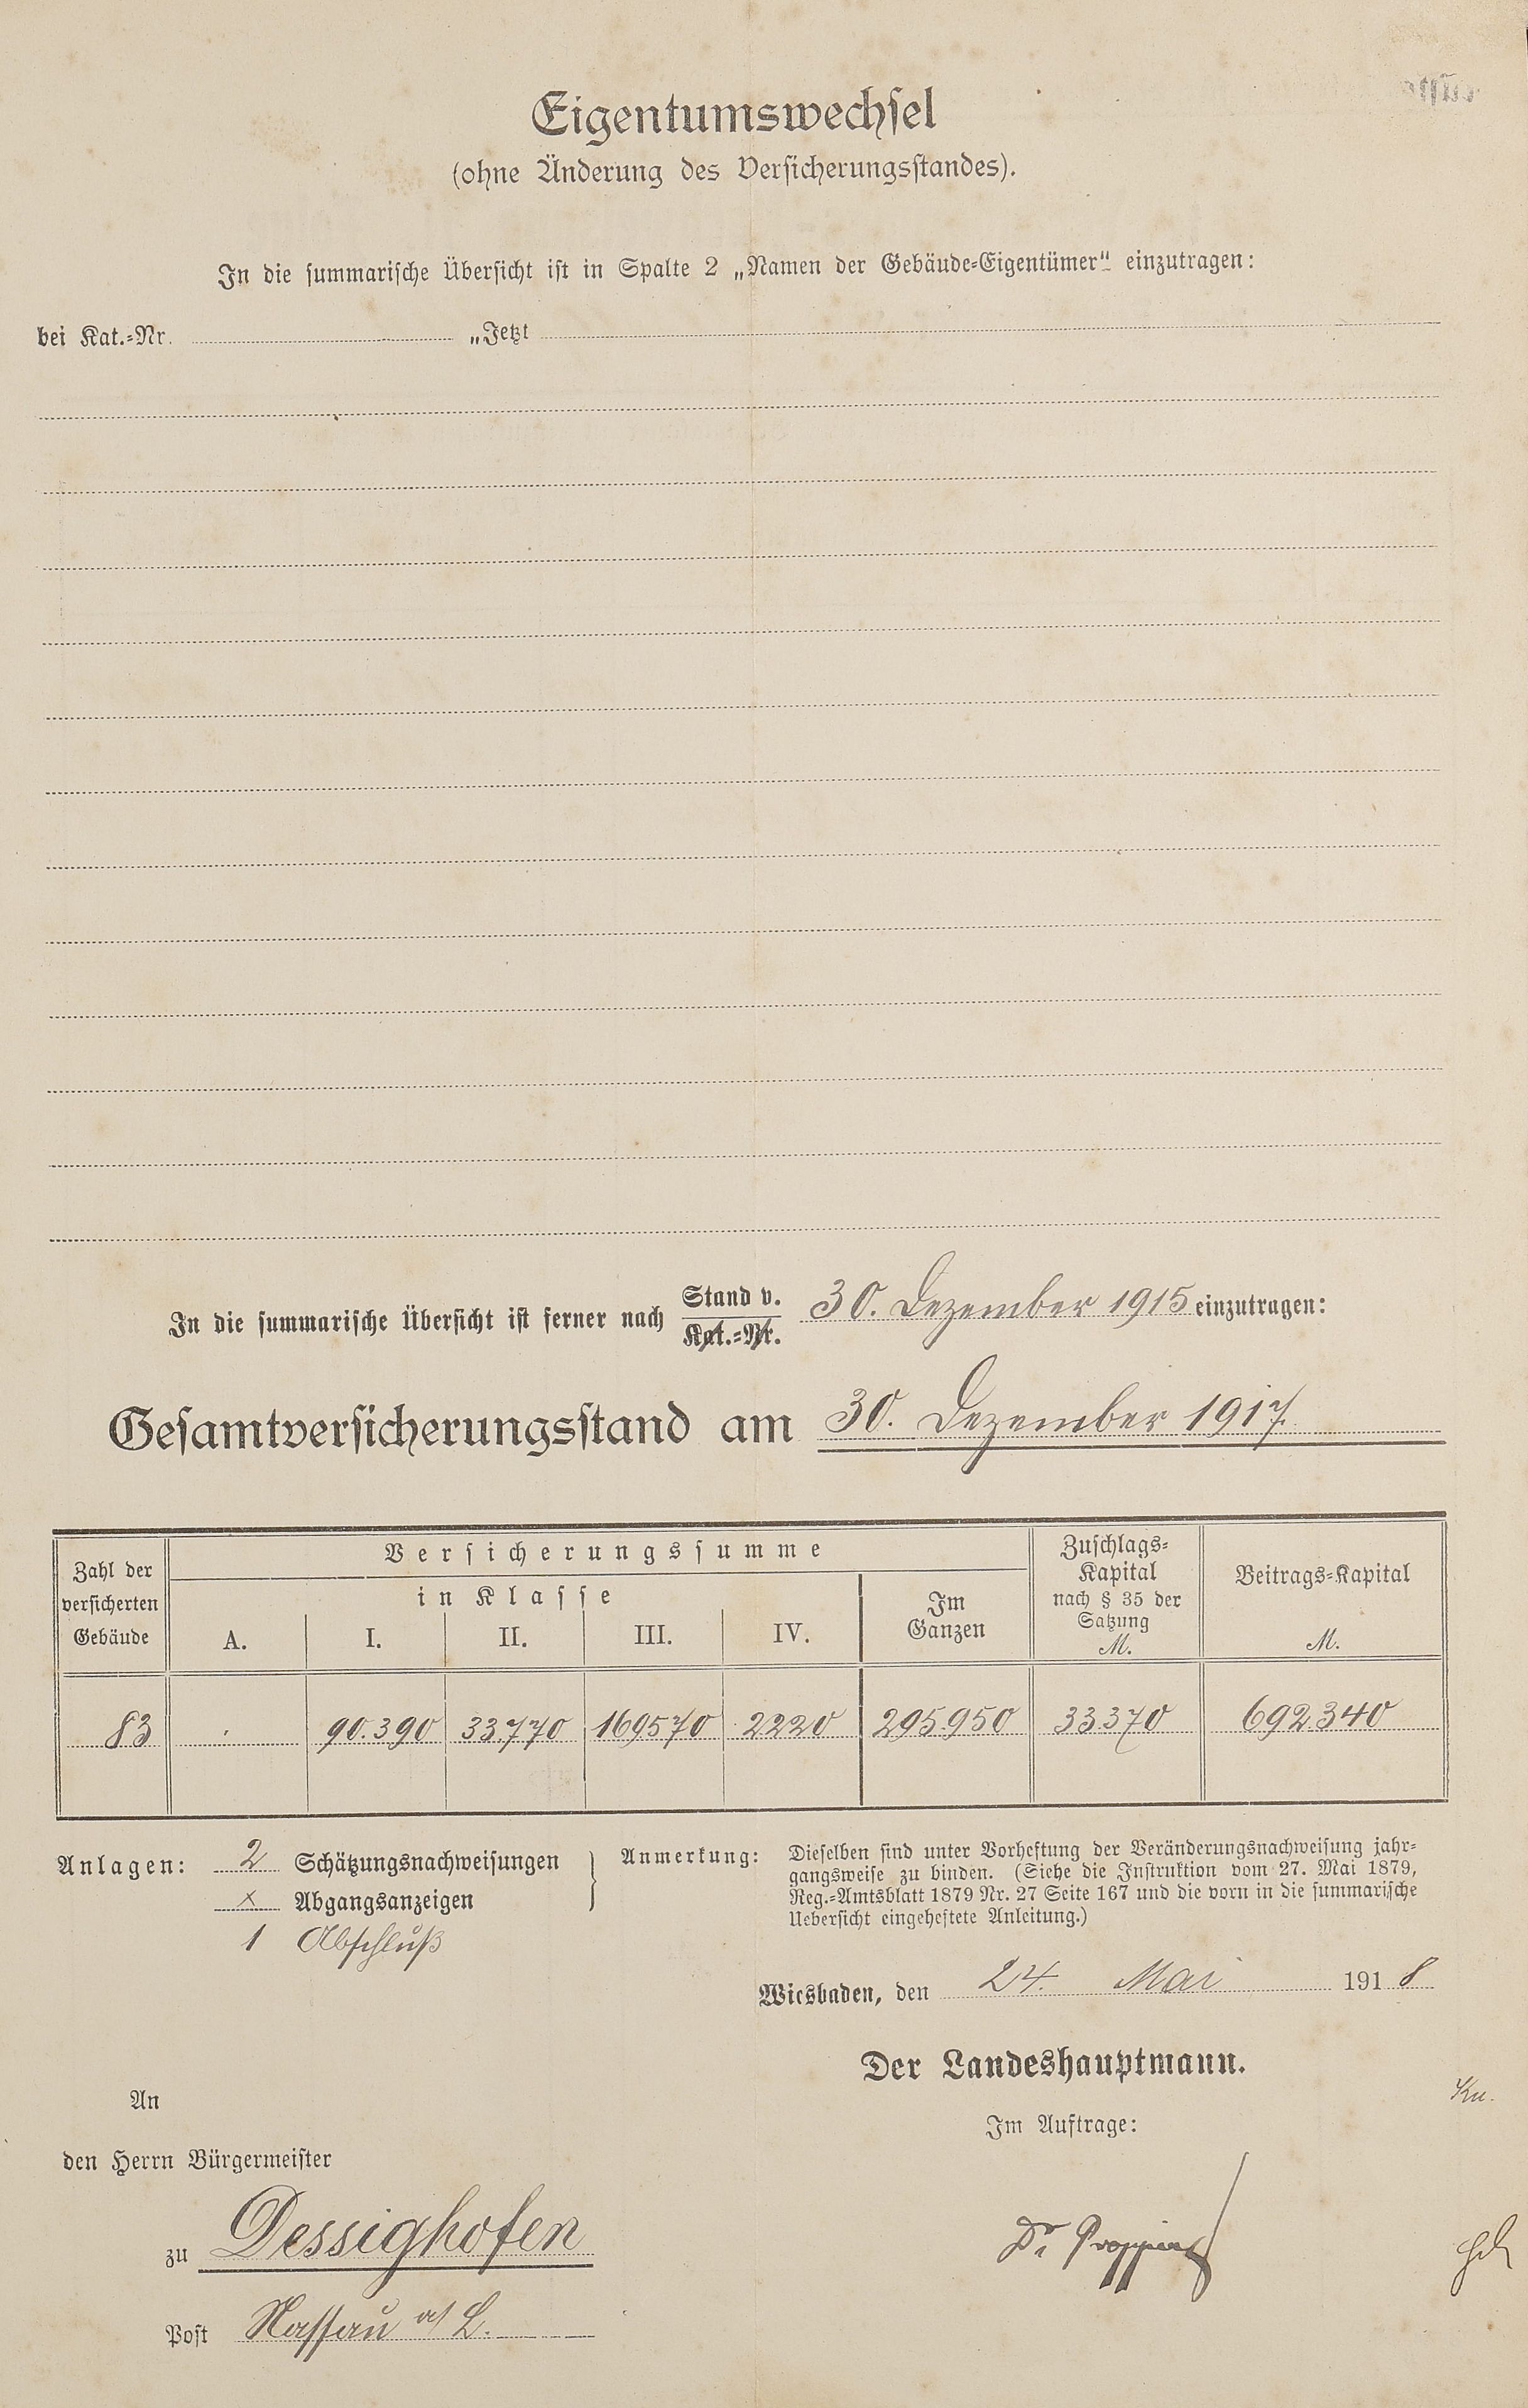 Eigentumswechsel
(ohne Änderung des Versicherungsstandes).
In die summarische Übersicht ist in Spalte 2 „Namen der Gebäude-Eigentümer" einzutragen:
bei Kat.-Nr. „Jetzt
In die summarische Übersicht ist ferner nach Stand v. 30. Dezember 1915 einzutragen:
Kat.-Nr.
Gesamtversicherungsstand am 30. Dezember 1917.
Zahl der versicherten Gebäude
Versicherungssumme
in Klasse
A. I. II. III. IV.
Im Ganzen
Zuschlags-Kapital nach § 35 der Satzung M.
Beitrags-Kapital M.
83 . 90.390 33.770 169570 2220 295.950 33370 692.340
Anlagen: 2 Schätzungsnachweisungen
x Abgangsanzeigen
1 Abschluß
Anmerkung: Dieselben sind unter Vorheftung der Veränderungsnachweisung jahr-
gangsweise zu binden. (Siehe die Instruktion vom 27. Mai 1879,
Reg.-Amtsblatt 1879 Nr. 27 Seite 167 und die vorn in die summarische
Uebersicht eingeheftete Anleitung.)
Wiesbaden, den 24. Mai 1918
Der Landeshauptmann.
Im Auftrage:
Kn.
An
den Herrn Bürgermeister
zu Dessighofen
Post Nassau a/ L.
Dr.